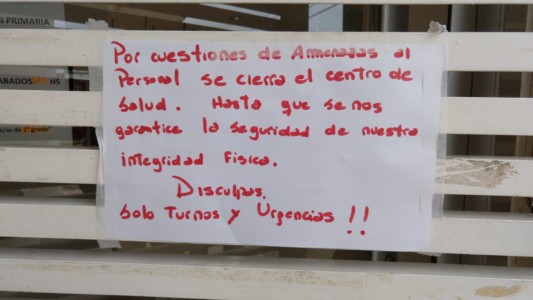 N PRIMARIA
ABADOS HS
1° grado"
Por cuestiones de Amenazas al
Personal se cierra el centro de
Salud. Hasta que se nos
garantice la seguridad de nuestra
integridad Fisica.
Disculpas.
Solo Turnos y Urgencias !!